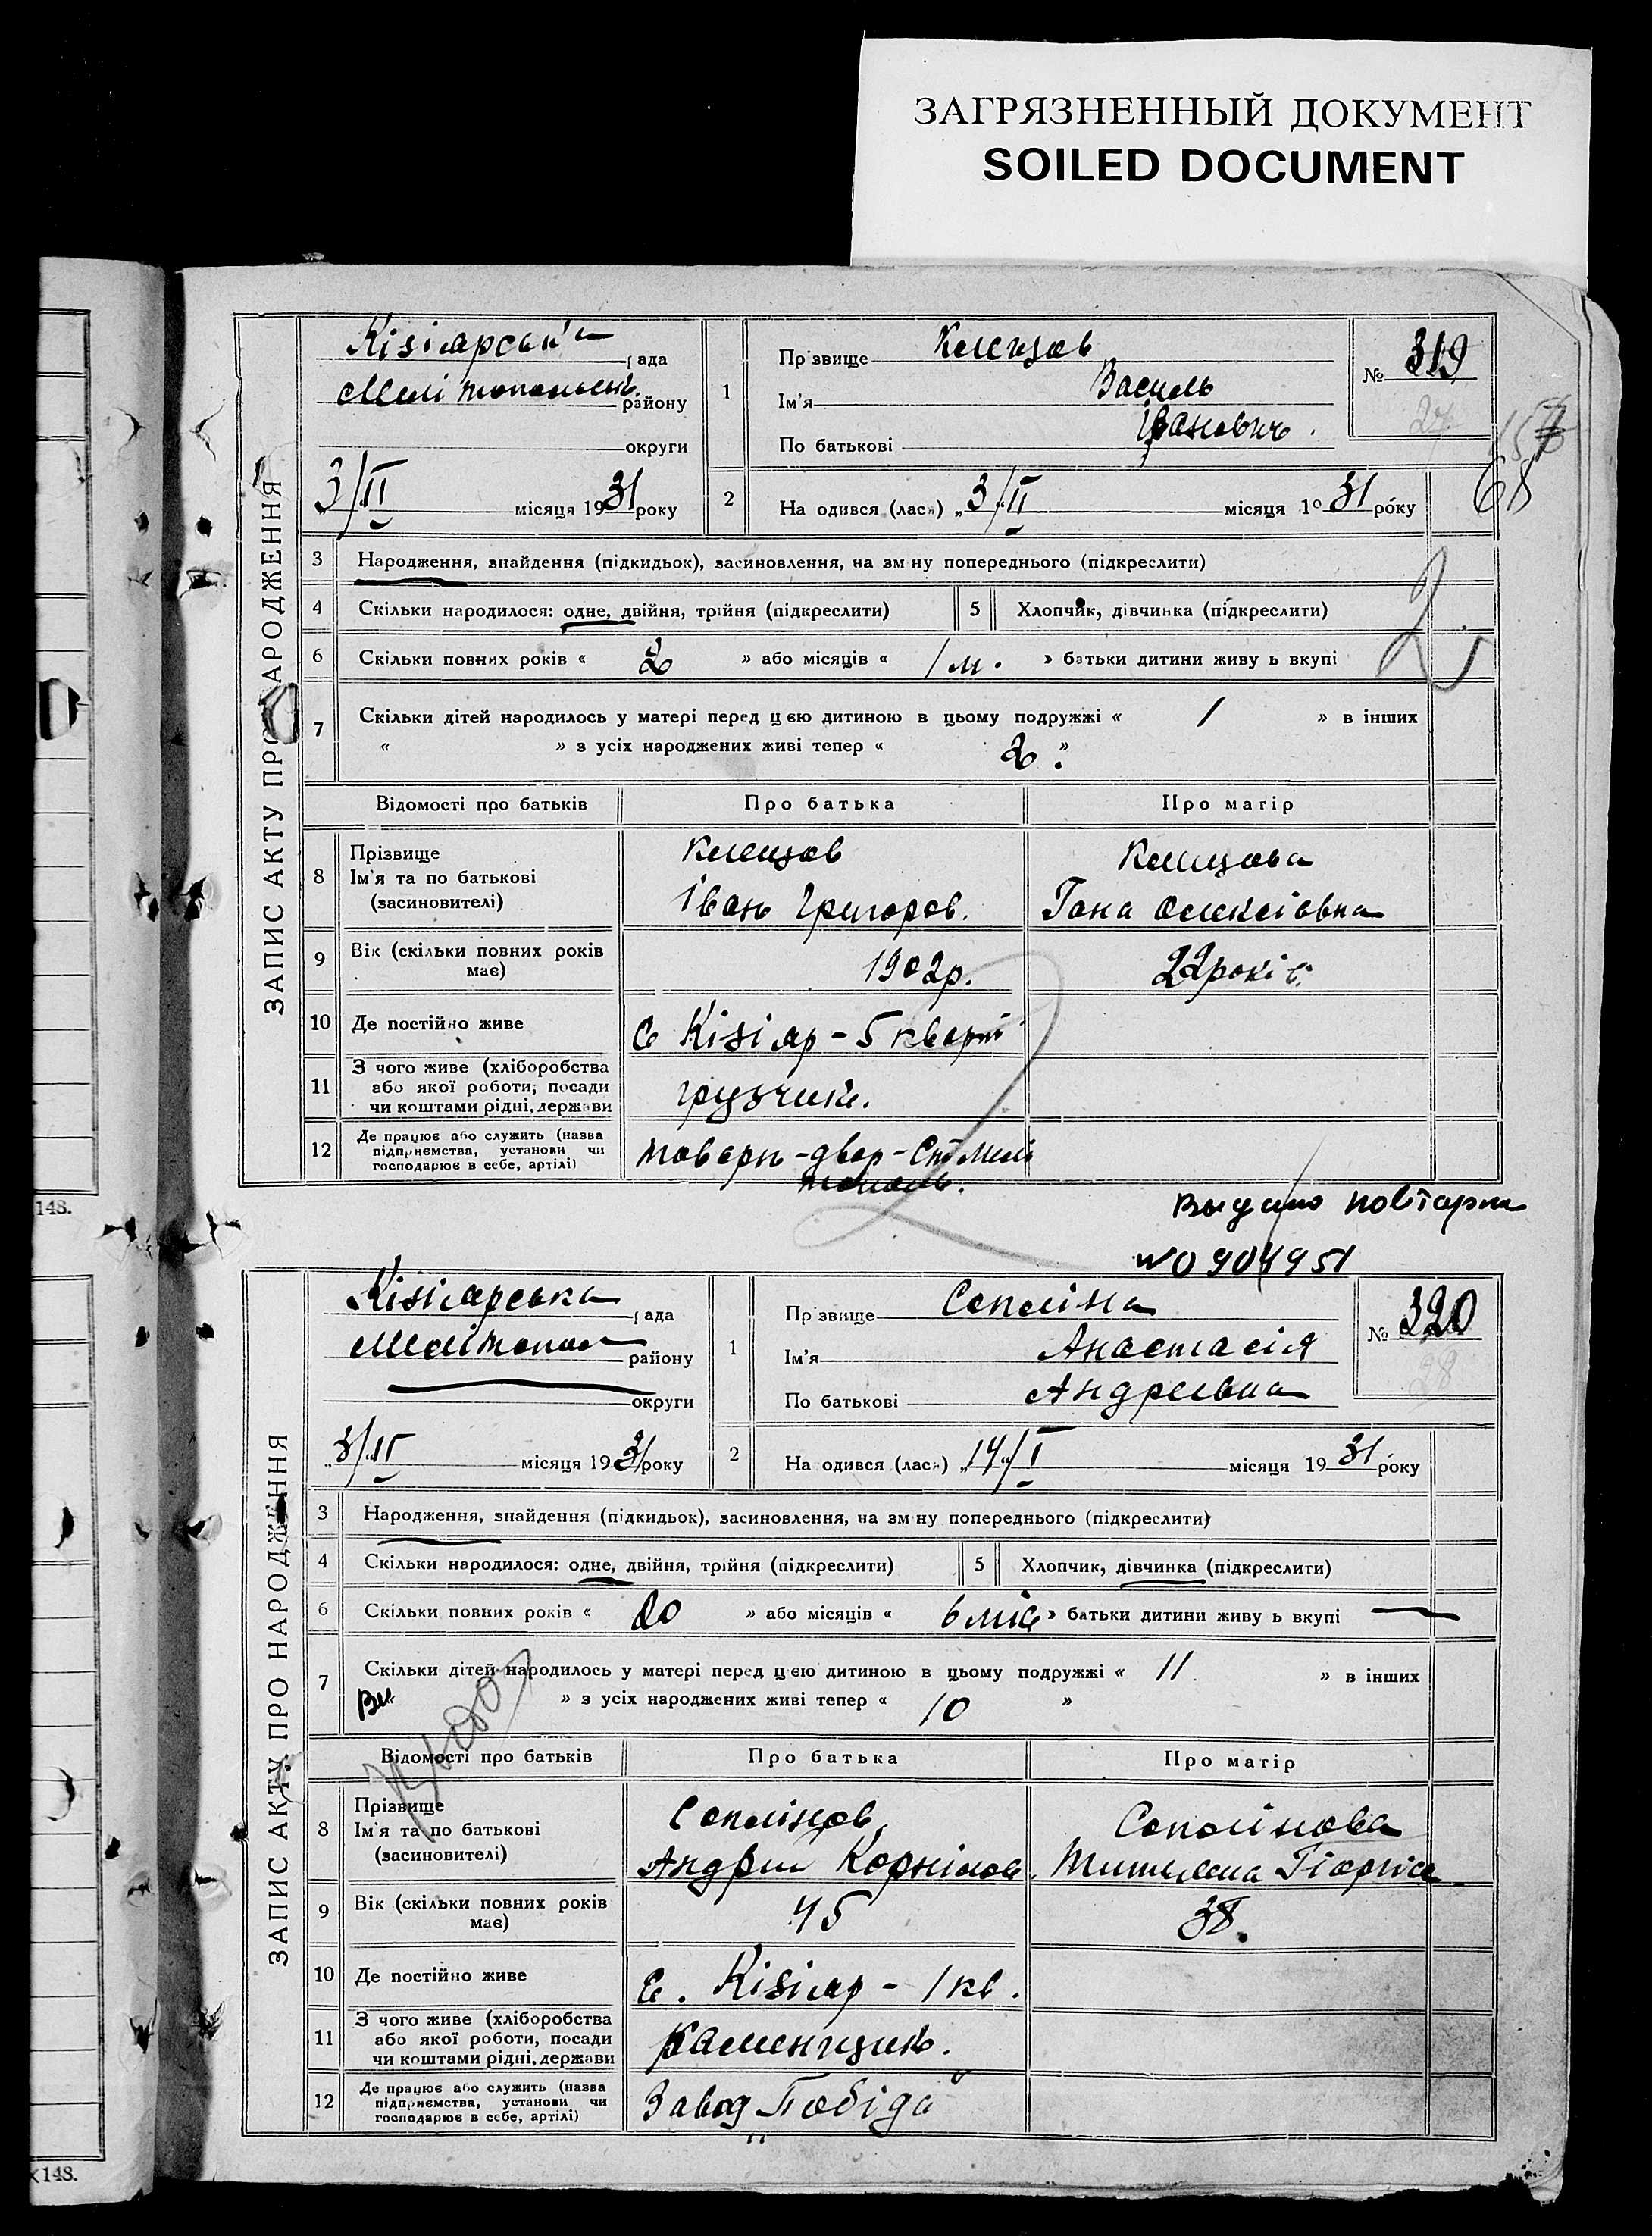 ЗАГРЯЗНЕННЫЙ ДОКУМЕНТ
SOILED DOCUMENT
ЗАПИС АКТУ ПРО НАРОДЖЕННЯ
Кізіярська рада
району
округи
3/II місяця 1931 року
1
Прізвище Клещов
Ім'я Василь
По батькові Іванович
№ 319
27
68
2
Народився (лась) „3/II місяця 1931 року
3 Народження, знайдення (підкидьок), засиновлення, на зміну попереднього (підкреслити)
4 Скільки народилося: одне, двійня, трійня (підкреслити)
5 Хлопчик, дівчинка (підкреслити)
6 Скільки повних років « 2 » або місяців « 1 м. » батьки дитини живуть вкупі
7 Скільки дітей народилось у матері перед цією дитиною в цьому подружжі « 1 » в інших
« » з усіх народжених живі тепер « 2. »
Відомості про батьків Про батька Про матір
8 Прізвище
Ім'я та по батькові
(засиновителі)
Клещов
Іван Григоров.
Клещова
Гана Олексіовна
9 Вік (скільки повних років
має)
1902р.
22 років.
10 Де постійно живе
С Кізіяр - 5 кварт
11 З чого живе (хліборобства
або якої роботи, посади
чи коштами рідні, держави
грузчик.
12 Де працює або служить (назва
підприємства, установи чи
господарює в себе, артілі)
товарн-двор-Ст Мелі
тополь.
148.
Выдано повторн
№ 0904951
ЗАПИС АКТУ ПРО НАРОДЖЕННЯ
Кізіярська рада
Мелітопол району
округи
3/II місяця 1931 року
1
Прізвище
Ім'я Анастасія
По батькові Андреевна
№ 320
28
2
Народився (лась) „14/I місяця 1931 року
3 Народження, знайдення (підкидьок), засиновлення, на зміну попереднього (підкреслити)
4 Скільки народилося: одне, двійня, трійня (підкреслити)
5 Хлопчик, дівчинка (підкреслити)
6 Скільки повних років « 20 » або місяців « 6 міс » батьки дитини живуть вкупі
7 Скільки дітей народилось у матері перед цією дитиною в цьому подружжі « 11 » в інших
Ви » з усіх народжених живі тепер « 10 »
Відомості про батьків Про батька Про матір
8 Прізвище
Ім'я та по батькові
(засиновителі)
Андрій Корнілов.
9 Вік (скільки повних років
має)
45
38.
10 Де постійно живе
с. Кізіяр - 1 кв.
11 З чого живе (хліборобства
або якої роботи, посади
чи коштами рідні, держави
каменщик.
12 Де працює або служить (назва
підприємства, установи чи
господарює в себе, артілі)
Завод „Побіда"
148.